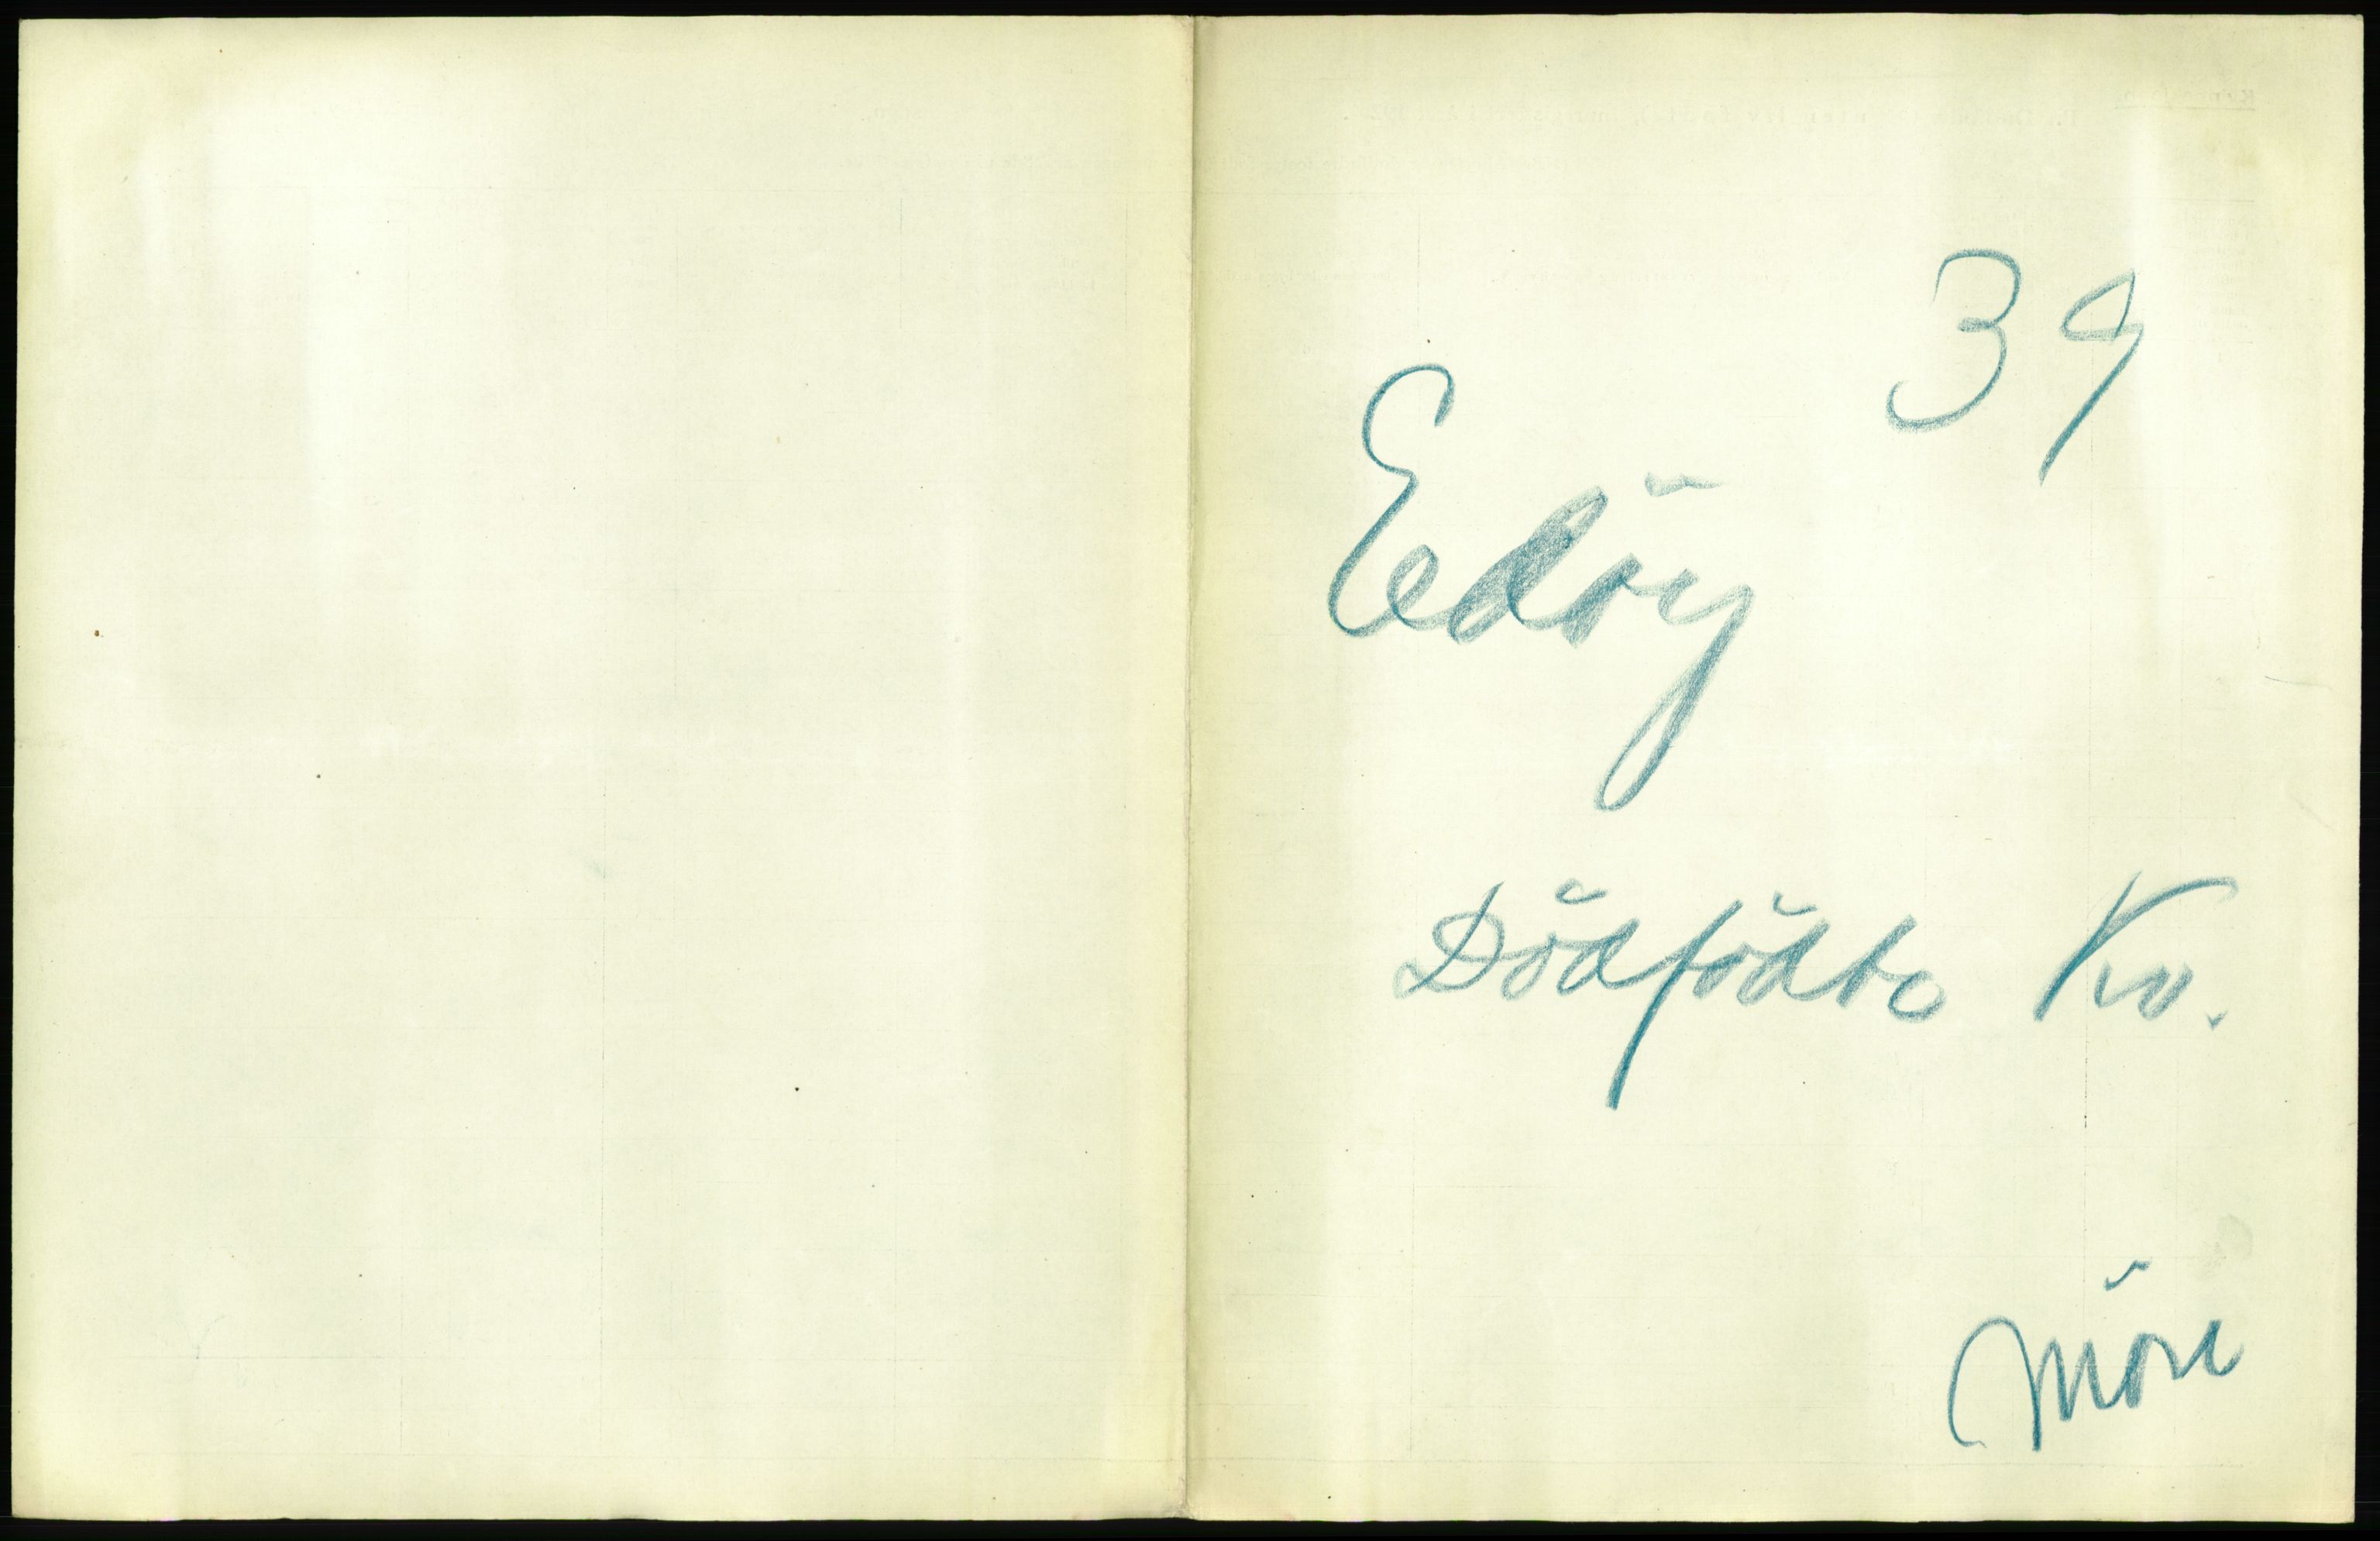 39
Edöy
Dödfödte Kv.
Möre